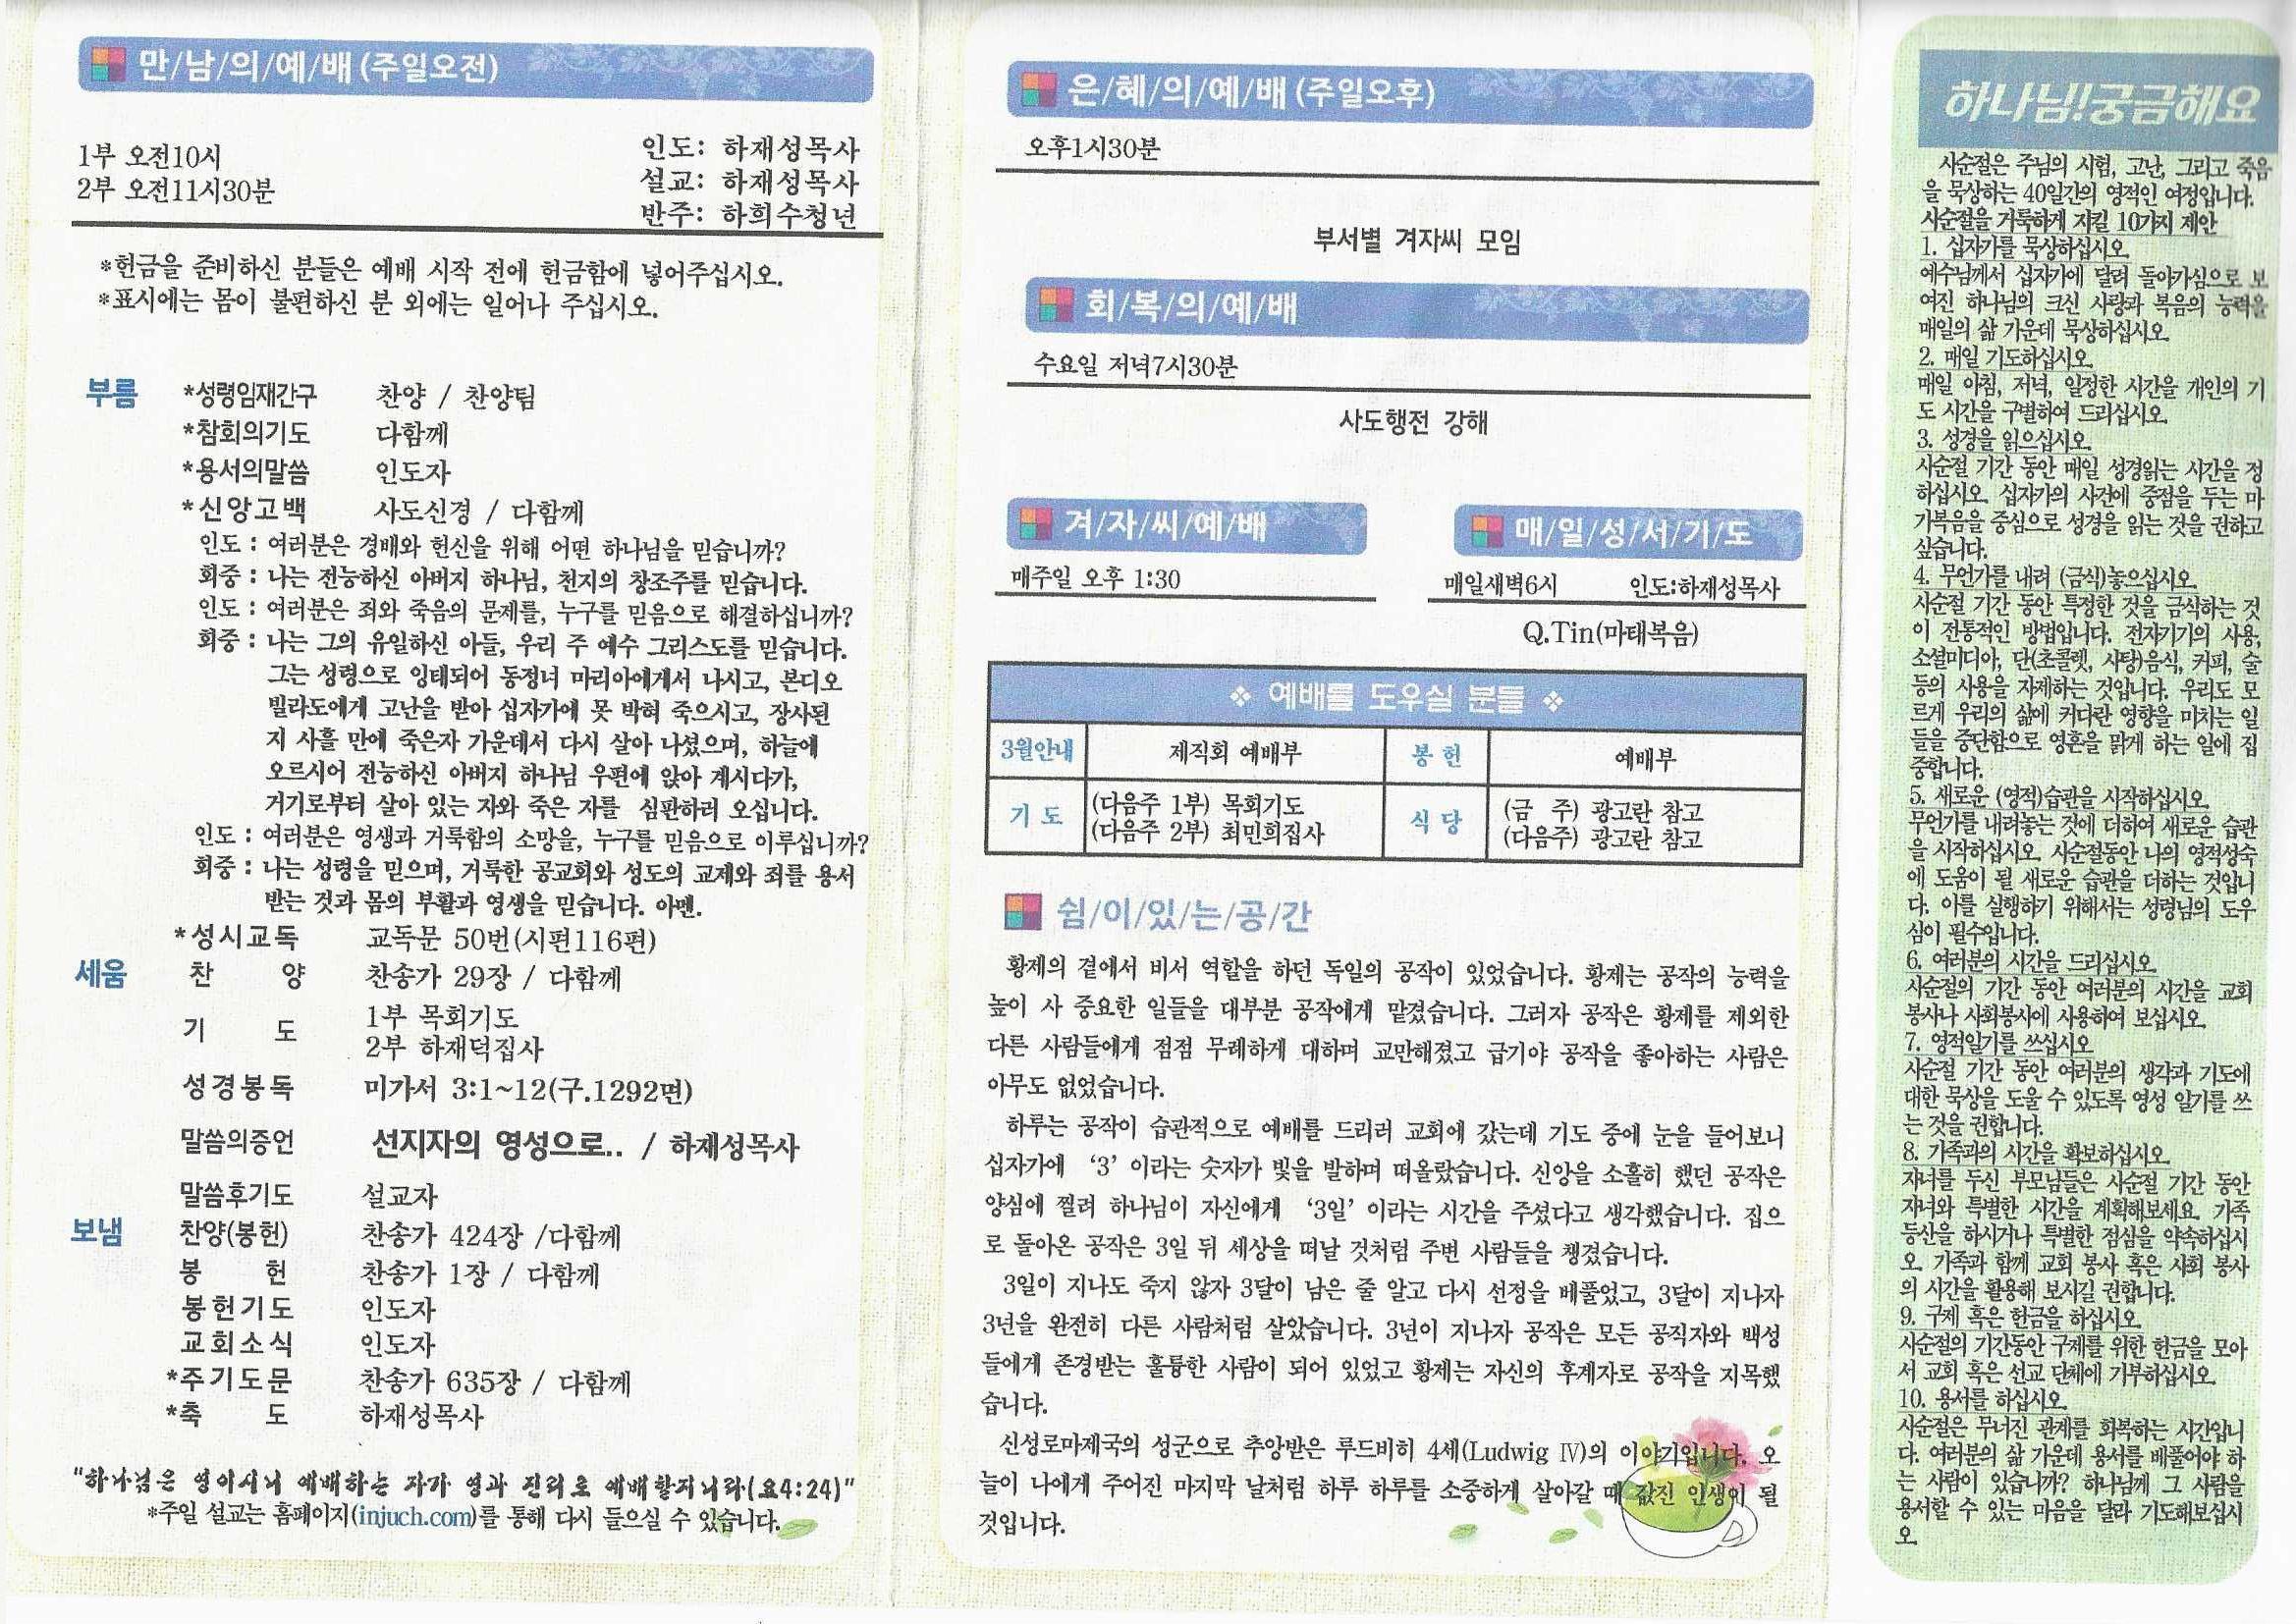 만/남/의/예/배(주일오전)
1부 오전10시
2부 오전11시30분
인도: 하재성목사
설교: 하재성목사
반주: 하희수청년
*헌금을 준비하신 분들은 예배 시작 전에 헌금함에 넣어주십시오.
*표시에는 몸이 불편하신 분 외에는 일어나 주십시오.
부름 *성령임재간구 찬양 / 찬양팀
*참회의기도 다함께
*용서의말씀 인도자
*신앙고백 사도신경 / 다함께
인도 : 여러분은 경배와 헌신을 위해 어떤 하나님을 믿습니까?
회중 : 나는 전능하신 아버지 하나님, 천지의 창조주를 믿습니다.
인도 : 여러분은 죄와 죽음의 문제를, 누구를 믿음으로 해결하십니까?
회중 : 나는 그의 유일하신 아들, 우리 주 예수 그리스도를 믿습니다.
그는 성령으로 잉태되어 동정녀 마리아에게서 나시고, 본디오
빌라도에게 고난을 받아 십자가에 못 박혀 죽으시고, 장사된
지 사흘 만에 죽은자 가운데서 다시 살아 나셨으며, 하늘에
오르시어 전능하신 아버지 하나님 우편에 앉아 계시다가,
거기로부터 살아 있는 자와 죽은 자를 심판하러 오십니다.
인도 : 여러분은 영생과 거룩함의 소망을, 누구를 믿음으로 이루십니까?
회중 : 나는 성령을 믿으며, 거룩한 공교회와 성도의 교제와 죄를 용서
받는 것과 몸의 부활과 영생을 믿습니다. 아멘.
*성시교독 교독문 50번(시편116편)
세움 찬 양 찬송가 29장 / 다함께
기 도 1부 목회기도
2부 하재덕집사
성경봉독 미가서 3:1~12(구.1292면)
말씀의증언 선지자의 영성으로.. / 하재성목사
말씀후기도 설교자
보냄 찬양(봉헌) 찬송가 424장 /다함께
봉 헌 찬송가 1장 / 다함께
봉헌기도 인도자
교회소식 인도자
*주기도문 찬송가 635장 / 다함께
*축 도 하재성목사
"하나님은 영이시니 예배하는 자가 영과 진리로 예배할지니라(요4:24)"
*주일 설교는 홈페이지(injuch.com)를 통해 다시 들으실 수 있습니다.
은/혜/의/예/배(주일오후)
오후1시30분
부서별 겨자씨 모임
회/복/의/예/배
수요일 저녁7시30분
사도행전 강해
겨/자/씨/예/배
매주일 오후 1:30
매/일/성/서/기/도
매일새벽6시 인도:하재성목사
Q.Tin(마태복음)
❖ 예배를 도우실 분들 ❖
3월안내 제직회 예배부 봉 헌 예배부
기 도 (다음주 1부) 목회기도 식 당 (금 주) 광고란 참고
(다음주 2부) 최민희집사 (다음주) 광고란 참고
쉼/이/있/는/공/간
황제의 곁에서 비서 역할을 하던 독일의 공작이 있었습니다. 황제는 공작의 능력을
높이 사 중요한 일들을 대부분 공작에게 맡겼습니다. 그러자 공작은 황제를 제외한
다른 사람들에게 점점 무례하게 대하며 교만해졌고 급기야 공작을 좋아하는 사람은
아무도 없었습니다.
하루는 공작이 습관적으로 예배를 드리러 교회에 갔는데 기도 중에 눈을 들어보니
십자가에 ‘3’ 이라는 숫자가 빛을 발하며 떠올랐습니다. 신앙을 소홀히 했던 공작은
양심에 찔려 하나님이 자신에게 ‘3일’ 이라는 시간을 주셨다고 생각했습니다. 집으
로 돌아온 공작은 3일 뒤 세상을 떠날 것처럼 주변 사람들을 챙겼습니다.
3일이 지나도 죽지 않자 3달이 남은 줄 알고 다시 선정을 베풀었고, 3달이 지나자
3년을 완전히 다른 사람처럼 살았습니다. 3년이 지나자 공작은 모든 공직자와 백성
들에게 존경받는 훌륭한 사람이 되어 있었고 황제는 자신의 후계자로 공작을 지목했
습니다.
신성로마제국의 성군으로 추앙받은 루드비히 4세(Ludwig Ⅳ)의 이야기입니다. 오
늘이 나에게 주어진 마지막 날처럼 하루 하루를 소중하게 살아갈 때 값진 인생이 될
것입니다.
하나님!궁금해요
사순절은 주님의 시험, 고난, 그리고 죽음
을 묵상하는 40일간의 영적인 여정입니다.
사순절을 거룩하게 지킬 10가지 제안
1. 십자가를 묵상하십시오.
예수님께서 십자가에 달려 돌아가심으로 보
여진 하나님의 크신 사랑과 복음의 능력을
매일의 삶 가운데 묵상하십시오.
2. 매일 기도하십시오.
매일 아침, 저녁, 일정한 시간을 개인의 기
도 시간을 구별하여 드리십시오.
3. 성경을 읽으십시오.
사순절 기간 동안 매일 성경읽는 시간을 정
하십시오. 십자가의 사건에 중점을 두는 마
가복음을 중심으로 성경을 읽는 것을 권하고
싶습니다.
4. 무언가를 내려 (금식)놓으십시오.
사순절 기간 동안 특정한 것을 금식하는 것
이 전통적인 방법입니다. 전자기기의 사용,
소셜미디아, 단(초콜렛, 사탕)음식, 커피, 술
등의 사용을 자제하는 것입니다. 우리도 모
르게 우리의 삶에 커다란 영향을 미치는 일
들을 중단함으로 영혼을 맑게 하는 일에 집
중합니다.
5. 새로운 (영적)습관을 시작하십시오.
무언가를 내려놓는 것에 더하여 새로운 습관
을 시작하십시오. 사순절동안 나의 영적성숙
에 도움이 될 새로운 습관을 더하는 것입니
다. 이를 실행하기 위해서는 성령님의 도우
심이 필수입니다.
6. 여러분의 시간을 드리십시오.
사순절의 기간 동안 여러분의 시간을 교회
봉사나 사회봉사에 사용하여 보십시오.
7. 영적일기를 쓰십시오.
사순절 기간 동안 여러분의 생각과 기도에
대한 묵상을 도울 수 있도록 영성 일기를 쓰
는 것을 권합니다.
8. 가족과의 시간을 확보하십시오.
자녀를 두신 부모님들은 사순절 기간 동안
자녀와 특별한 시간을 계획해보세요. 가족
등산을 하시거나 특별한 점심을 약속하십시
오. 가족과 함께 교회 봉사 혹은 사회 봉사
의 시간을 활용해 보시길 권합니다.
9. 구제 혹은 헌금을 하십시오.
사순절의 기간동안 구제를 위한 헌금을 모아
서 교회 혹은 선교 단체에 기부하십시오.
10. 용서를 하십시오.
사순절은 무너진 관계를 회복하는 시간입니
다. 여러분의 삶 가운데 용서를 베풀어야 하
는 사람이 있습니까? 하나님께 그 사람을
용서할 수 있는 마음을 달라 기도해보십시
오.